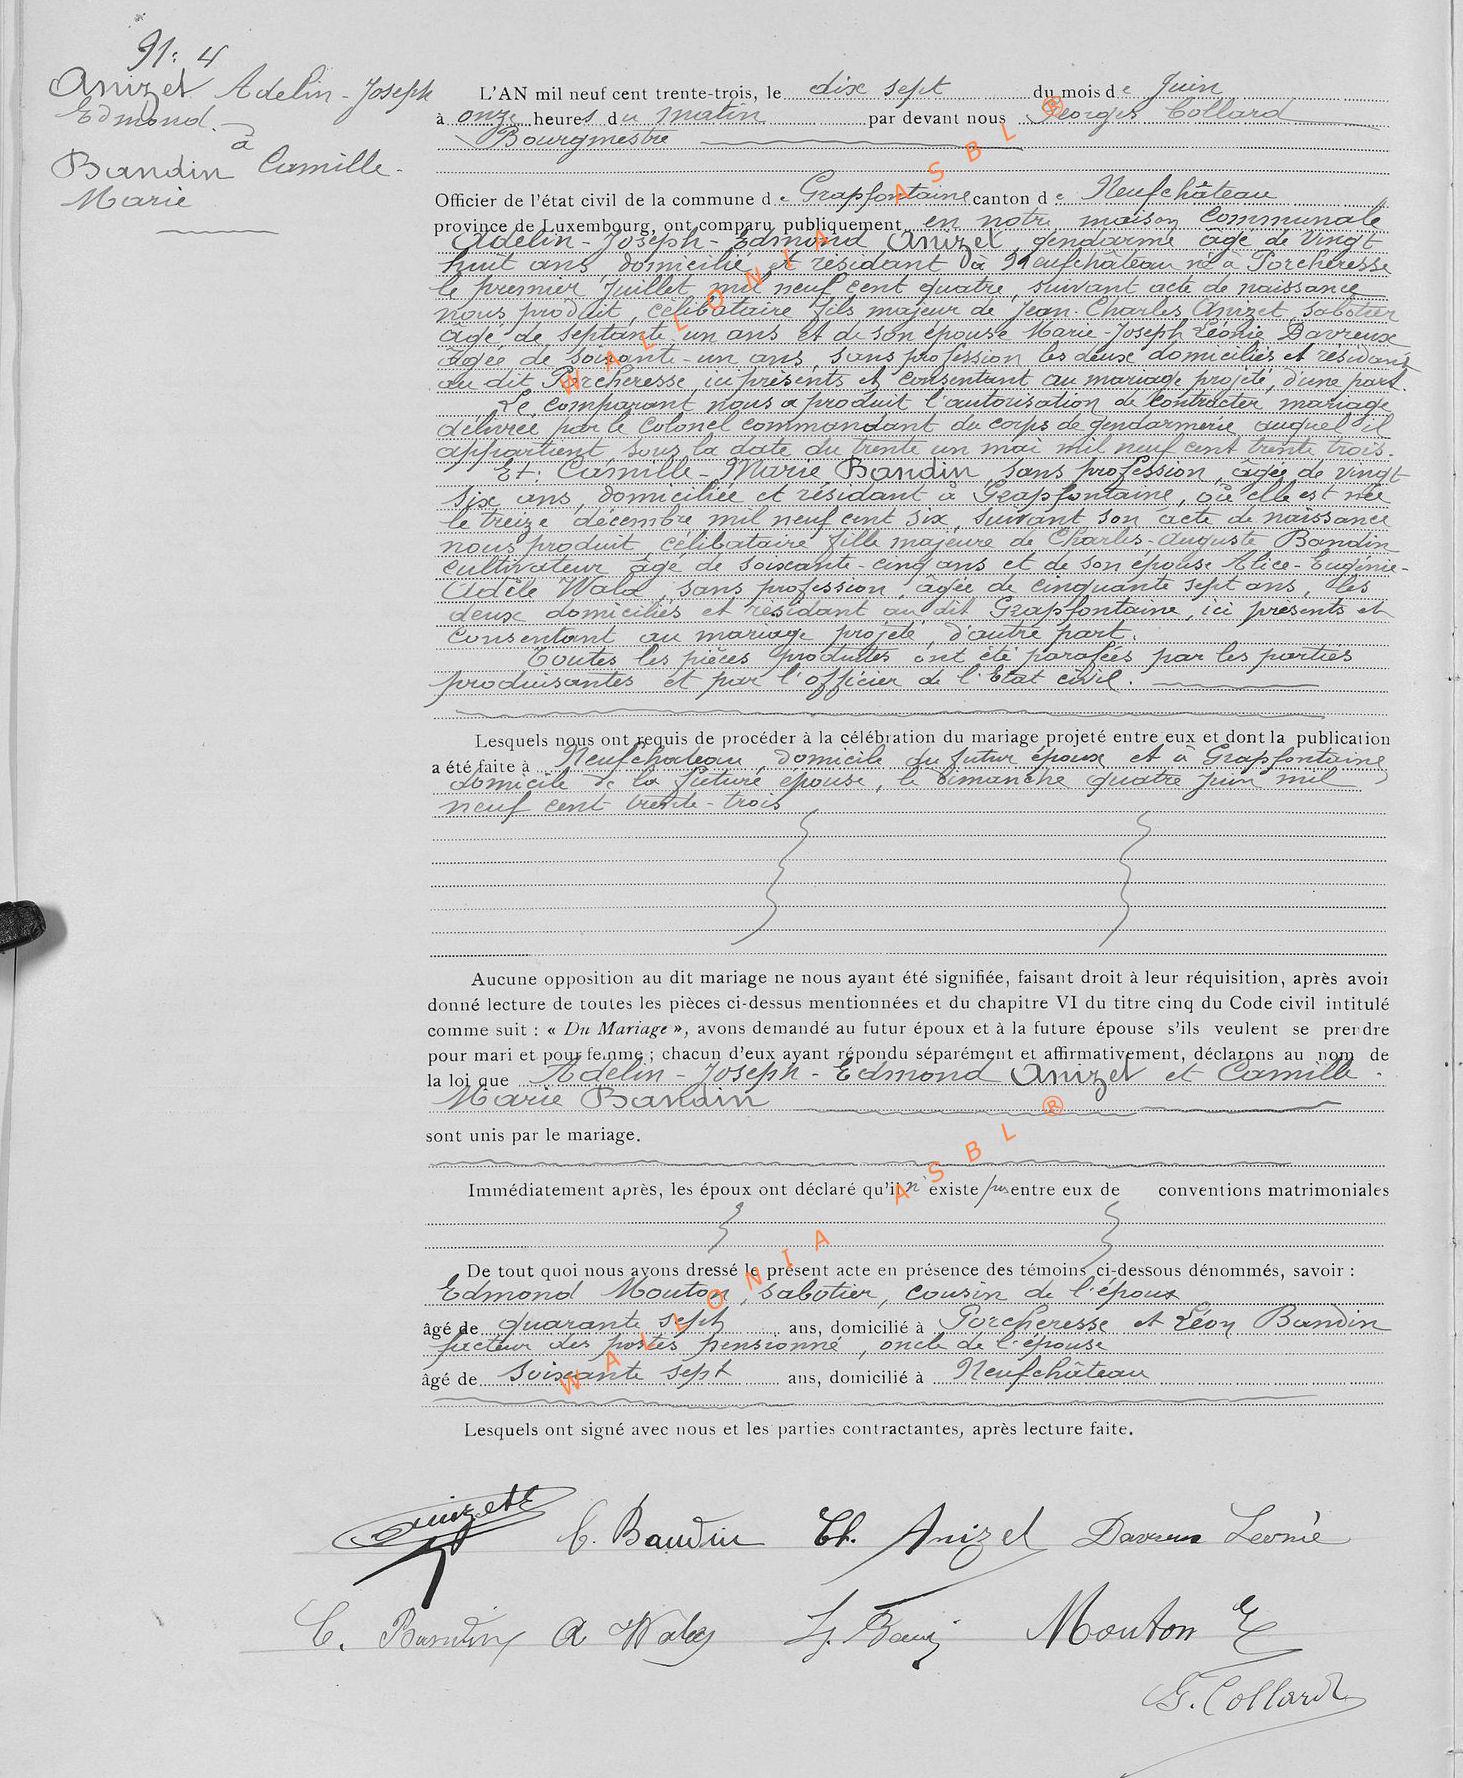 91. 4
Anizet Adelin-Joseph
Edmond.
à
Baudin Camille-
Marie
L'AN mil neuf cent trente-trois, le dix sept du mois de Juin
à onze heures du matin par devant nous Georges Collard
Bourgmestre
Officier de l'état civil de la commune de Grapfontaine canton de Neufchâteau
province de Luxembourg, ont comparu publiquement en notre maison Communale
Adelin-Joseph-Edmond Anizet, gendarme âgé de vingt
huit ans, domicilié et résidant à Neufchâteau né à Porcheresse
le premier Juillet mil neuf cent quatre, suivant acte de naissance
nous produit, célibataire fils majeur de Jean-Charles Anizet, sabotier
âgé de septante-un ans et de son épouse Marie-Joseph Léonie Davreux
âgée de soixante-un ans, sans profession, les deux domiciliés et résidant
au dit Porcheresse, ici présents et consentant au mariage projeté, d'une part.
Le comparant nous a produit l'autorisation de contracter mariage
délivrée par le Colonel commandant du corps de gendarmerie auquel il
appartient sous la date du trente un mai mil neuf cent trente trois.
Et: Camille-Marie Baudin, sans profession, âgée de vingt
six ans, domiciliée et résidant à Grapfontaine, où elle est née
le treize décembre mil neuf cent six, suivant son acte de naissance
nous produit, célibataire fille majeure de Charles-Auguste Baudin
cultivateur âgé de soixante-cinq ans et de son épouse Alice-Eugénie-
Adèle Wala, sans profession, âgée de cinquante sept ans, les
deux domiciliés et résidant au dit Grapfontaine, ici présents et
consentant au mariage projeté, d'autre part.
Toutes les pièces produites ont été parafées par les parties
produisantes et par l'officier de l'Etat civil.
Lesquels nous ont requis de procéder à la célébration du mariage projeté entre eux et dont la publication
a été faite à Neufchateau, domicile du futur époux et à Grapfontaine
domicile de la future épouse, le dimanche quatre juin mil
neuf cent trente-trois
Aucune opposition au dit mariage ne nous ayant été signifiée, faisant droit à leur réquisition, après avoir
donné lecture de toutes les pièces ci-dessus mentionnées et du chapitre VI du titre cinq du Code civil intitulé
comme suit : « Du Mariage », avons demandé au futur époux et à la future épouse s'ils veulent se prendre
pour mari et pour femme ; chacun d'eux ayant répondu séparément et affirmativement, déclarons au nom de
la loi que Adelin-Joseph-Edmond Anizet et Camille-
Marie Baudin
sont unis par le mariage.
Immédiatement après, les époux ont déclaré qu'il n'existe pas entre eux de conventions matrimoniales
De tout quoi nous avons dressé le présent acte en présence des témoins ci-dessous dénommés, savoir :
Edmond Mouton, sabotier, cousin de l'époux
âgé de quarante sept ans, domicilié à Porcheresse et Léon Baudin
facteur des postes pensionné, oncle de l'épouse
âgé de soixante sept ans, domicilié à Neufchâteau
Lesquels ont signé avec nous et les parties contractantes, après lecture faite.
C. Baudin Ch. Anizet Davreux Léonie
C. Baudin A Mouton E
G. Collard
WALLONIA ASBL ®
WALLONIA ASBL ®